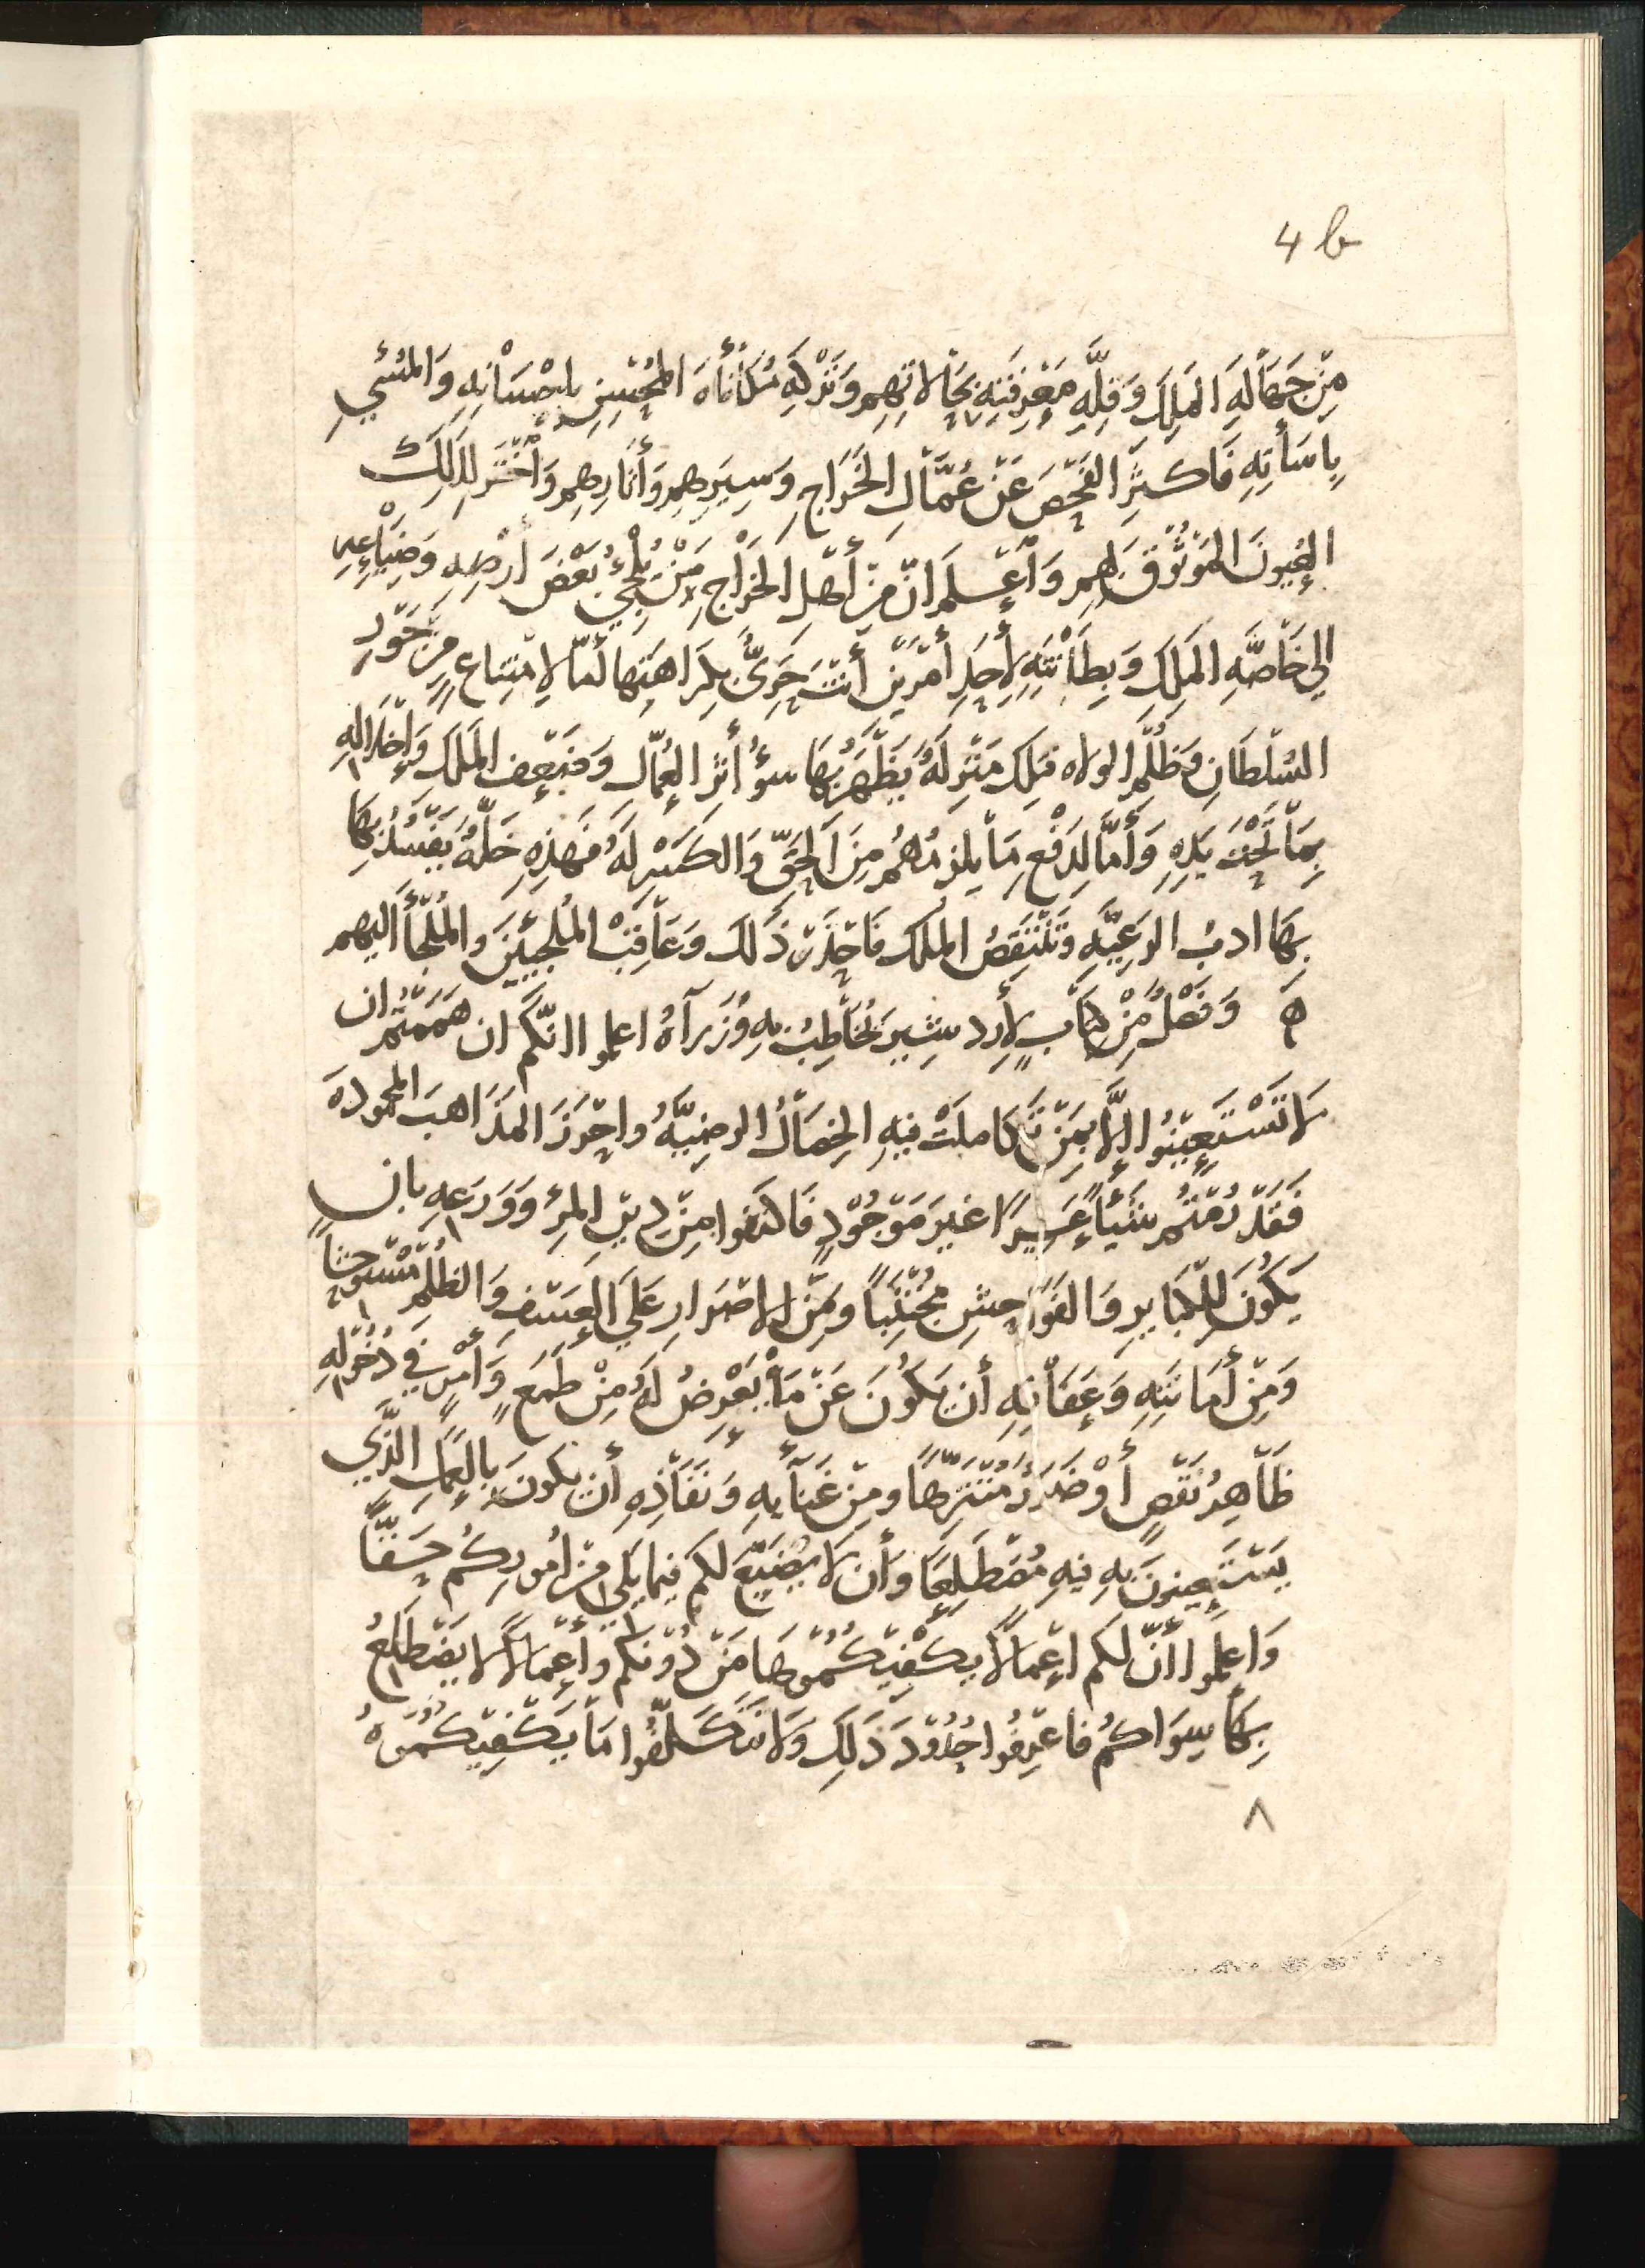 4 b
مِنْ جَهَالَهِ المَلِكِ وَقِلَّهِ مَعْرِفَتِهِ بِحَالَاتِهِم وَتَرْكِهِ مُكَافَأَهَ المُحْسِنِ بِاِحْسَانِهِ وَالمُسْيِ
بِاسَأتِهِ فَاكثِرِ الفَحْصَ عَنْ عُمَّالِ الخَرَاجِ وَسِيَرِهِم وَأثَارِهِم وَاخْتَر لِذَلِكَ
العُيُونَ المَوْثُوْقَ بِهِم وَاعْلَم انّ مِنْ أهْلِ الخَرَاجِ مَنْ يُلْجِئُ بَعْضَ أرْضِهِ وَضِيَاعِهِ
الي خَاصَّهِ المَلِكِ وَبِطَانَتِهِ لِأحَدِ أمْرَيْن أنْتَ حَرِىٌّ بِكَرَاهَتِها أمّا لِامْتِنَاعٍ مِنْ جَوْرِ
السُلْطَانِ وَظُلْمِ الولاه فتلك مَنْزِلَهُ يَظْهَرُ بِهَا سوُ أثَرِ العُمّالِ وَضَعْفِ المَلِكِ وَاِخْلَالِهِ
بِمَا تَحْتَ يَدِهِ وَأمَّا لِدَفْعِ مَا يلزمُهُم مِنَ الحَقِّ وَالكَسْرِ لَهُ فَهَذِهِ خَلّهُ يَفْسُدُ بِهَا
بِهَا ادبُ الرَعِيَّهِ وَتَنْتَقِصُ المُلك فَاحْذَرْ ذَلكَ وَعَاقِبْ المُلجِيْينَ وَالمُلْجَأ اليهم
ه وَفَصْلٌ مِنْ كِتَابٍ لِأرد شِيرَ يُخَاطِبُ بِهِ وُزَرآهُ اعلموا انّكُم ان هَمَمْتُم ان
لَا تَسْتَعِيْنُوا اِلَّا بِمَنْ تَكَامَلَتْ فِيهِ الخِصَالُ الرضِيَّهُ واحْرَزَ المذَاهِبَ المحمودهَ
فَقَدْ رُمْتُم شَيْأً عَسِيرًا غيرَ مَوْجُوْدٍ فَاكتَفوا مِنْ دِيْنِ المرءِ وَوَرَعِهِ بان
يَكُوْنَ لِلكَبَايرِ وَالفَوَاحِشِ مُجْتَنِبًا ومِنْ الاصْرَارِ عَلَي العَسْفِ وَالظُلْمِ مُسْتَوْحِشًا
وَمِنْ أمَانَتِهِ وَعِفَافِهِ أن يَكُوْنَ عَنْ مَا يَعْرِضُ لَهُ مِنْ طَمَعٍ وَأمْرٍ في دُخُوْلِهِ
ظَاهِرُ نَقْصٍ أوْ ضَرَرٌ مُتَنَزِّهًا ومِنْ غَنَآيِهِ وَنَفَاذِهِ أن يكونَ بِالعَمَلِ الَّذي
يَسْتَعِينوْنَ بهِ فيهِ مُضْطَلِعًا وَأن لَا يُضَيِّعَ لَكم فيما يَلِي مِنْ امُورِكُم حَقًّا
وَاعلمُوا أنّ لكم اعْمَالًا يَكْفِيْكُمُوْهَا مَنْ دُوْنكُم وأعْمَالًا لا يَضْطَلِعُ
بِهَا سِوَاكُم فاعْرِفُوا حُدُوْدَ ذَلِكَ وَلَا تَتَكَلَّفُوا مَا يَكْفِيْكُمُوْهُ
٨